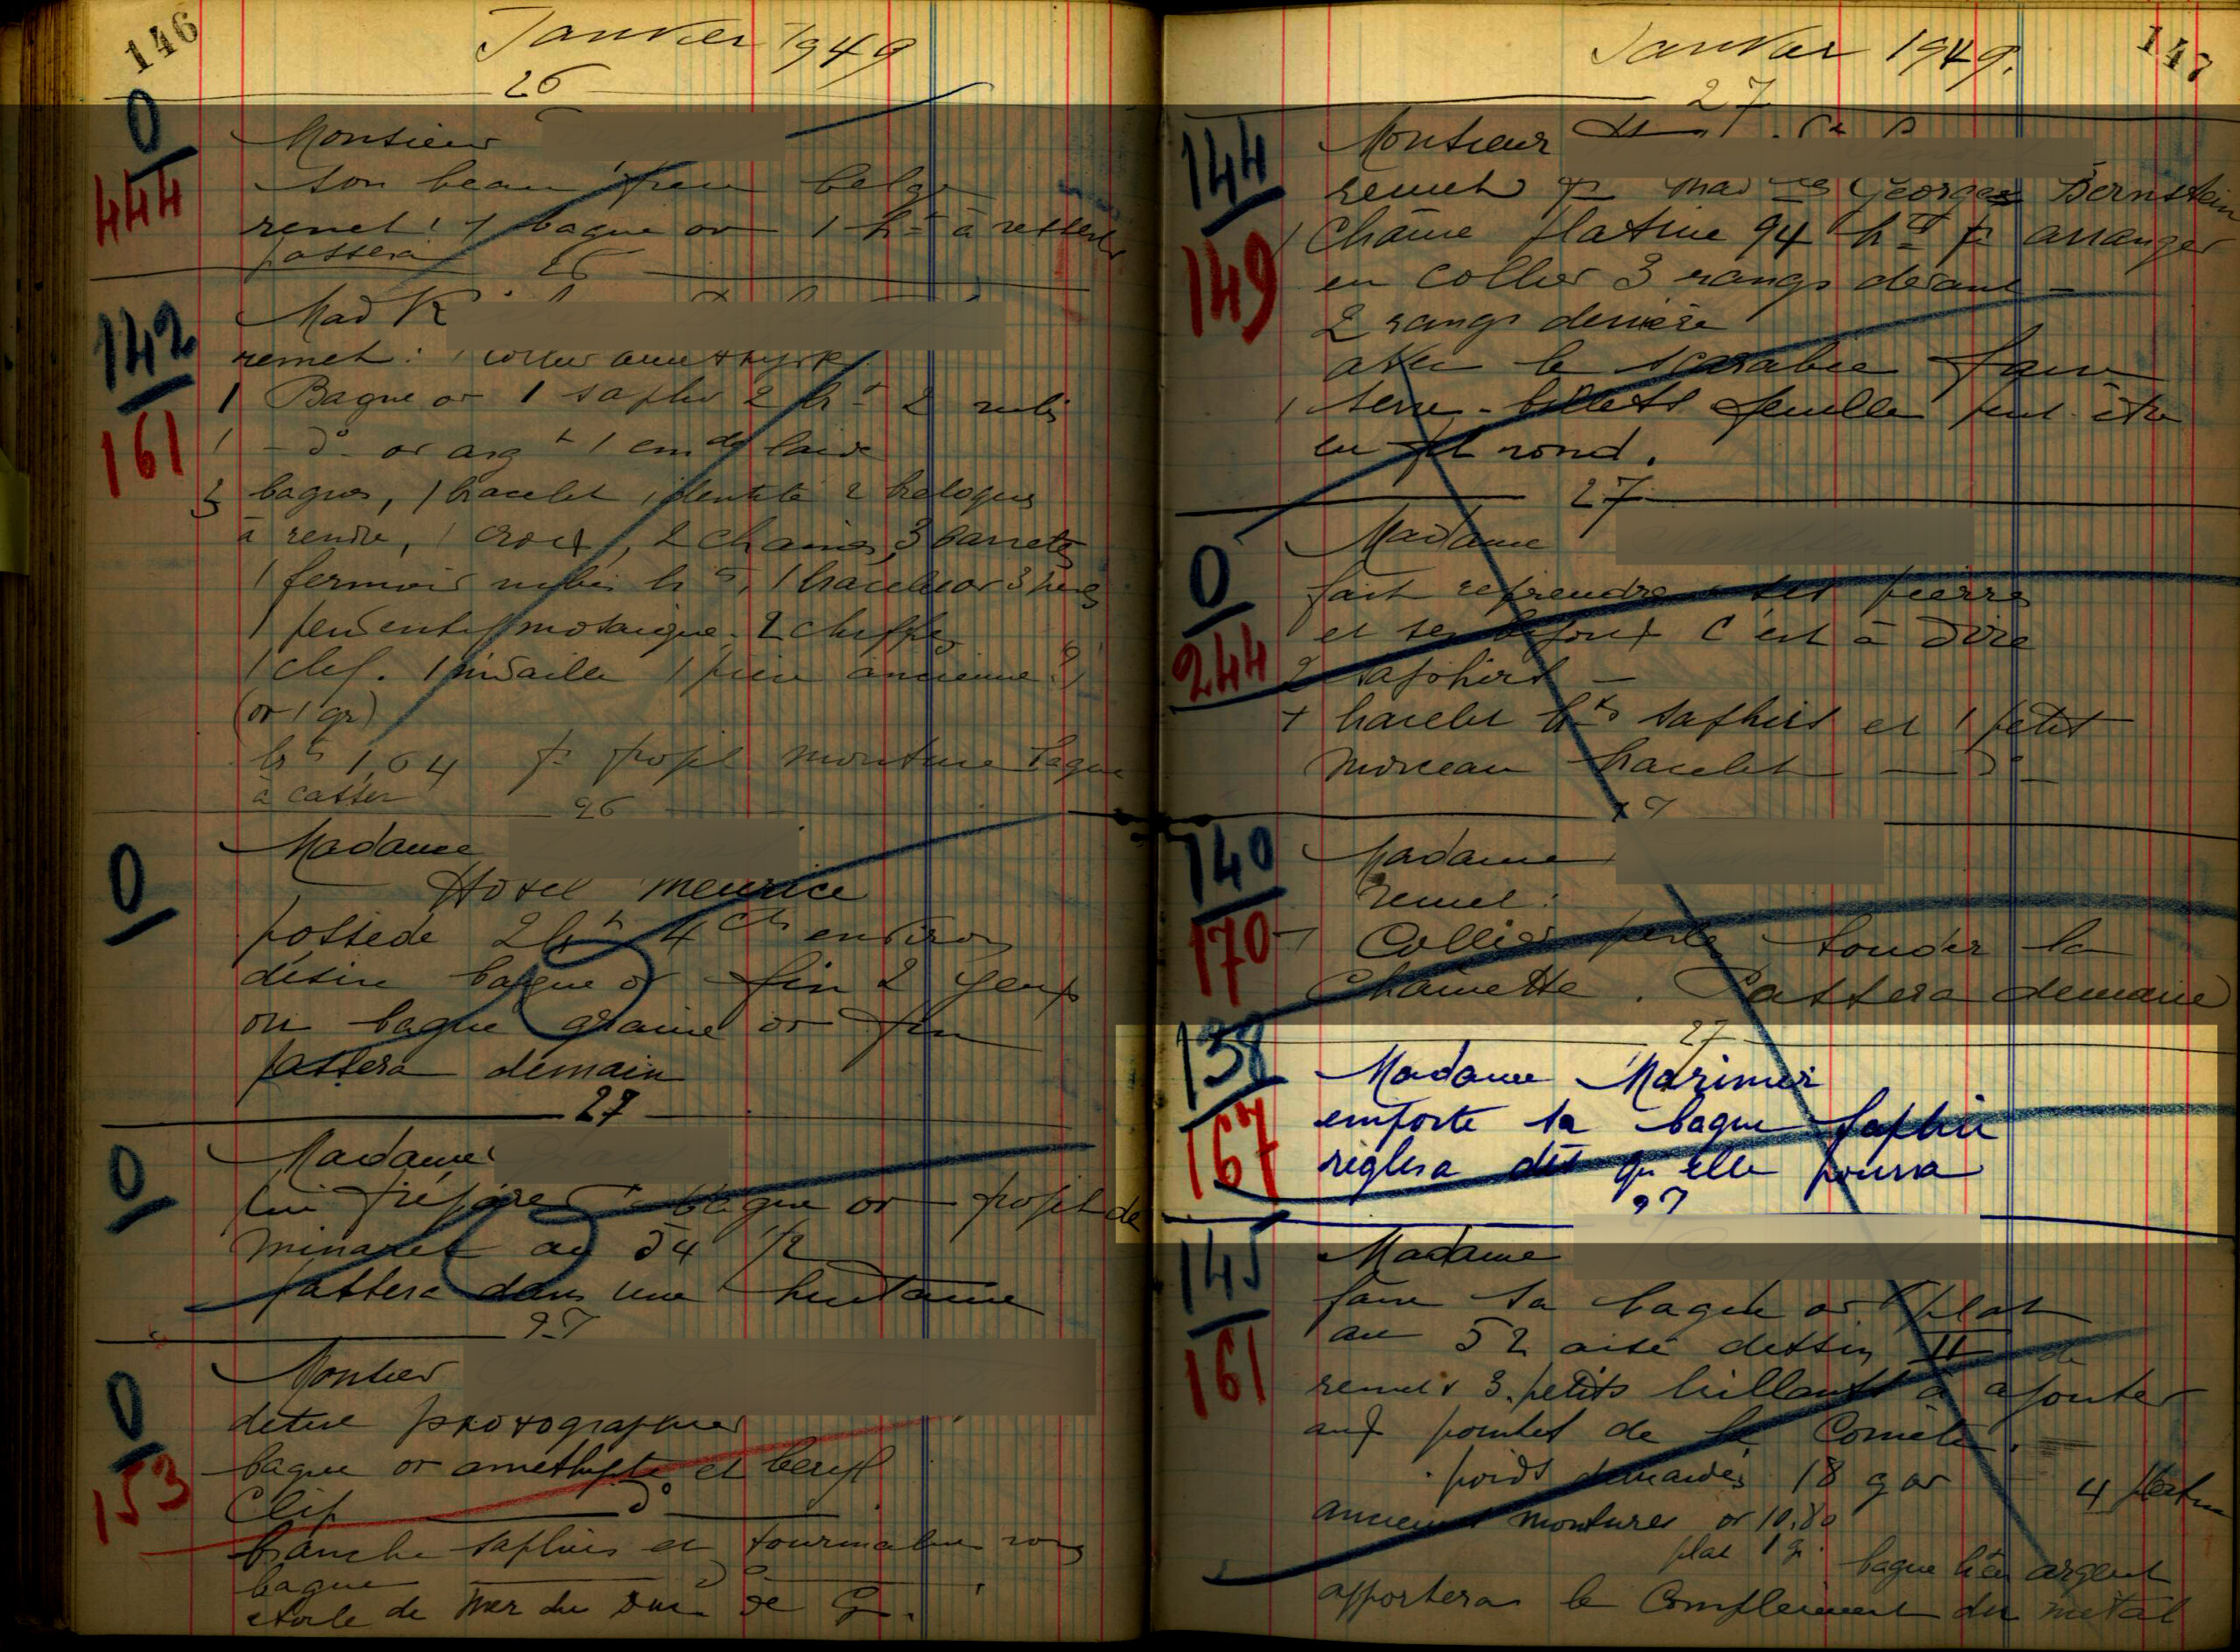 146
Janvier 1949
26
0
444
Monsieur
son beau frère belge
remet : 1 bague or 1 bt à resserrer
passera
26
142
161
Mad K
remet : 1 collier améthyste
1 Bague or 1 saphir 2 bts 2 rubis
1 - do - or argt 1 emde
3 bagues, 1 bracelet identité 2 breloques
à rendre, 1 croix, 2 chaines, 3 barrettes
1 fermoir rubis bts, 1 bracelet or
1 pendentif mosaique. 2 chiffres
1 clef. 1 médaille 1 pièce ancienne ?
(or 1 gr)
bts 1,64 pr projet monture bague
à casser
26
0
Madame
Hotel Meurice
possède 2 bts 4 cts environ
désire bague or fin 2 yeux
ou bague graine or fin
passera demain
27
0
Madame
lui préparer 1 bague or projet de
minaret au 54 1/2
passera dans une huitaine
27
0
153
Monsieur
désire photographier
bague or améthyste et beryl
Clip do
branche saphirs et tourmalines
bague do
étoile de mer du Duc de G.
147
Janvier 1949.
27
144
149
Monsieur
remet pr Georges Bernstein
1 Chaine platine 94 bts pr arranger
en collier 3 rangs devant -
2 rangs derrière
avec le scarabée faire
1 serre-billets feuille peut-être
en fil rond.
27
0
244
Madame
fait reprendre ses pierres
et ses bijoux c'est à dire
2 saphirs -
1 bracelet bts saphirs et 1 petit
morceau bracelet - do -
27
140
170
Madame
remet :
1 Collier perles souder la
chainette. Passera demain
27
138
167
Madame Marimer
emporte sa bague saphir
règlera dès qu'elle pourra
27
145
161
Madame
faire sa bague or plat
au 52 aisé dessin II de
remet 3 petits brillants à ajouter
aux pointes de la Comète.
poids demandés 18 g or 4 platine
anciennes montures or 10,80
plat 1 gr. bague argent
apportera le complément du métal